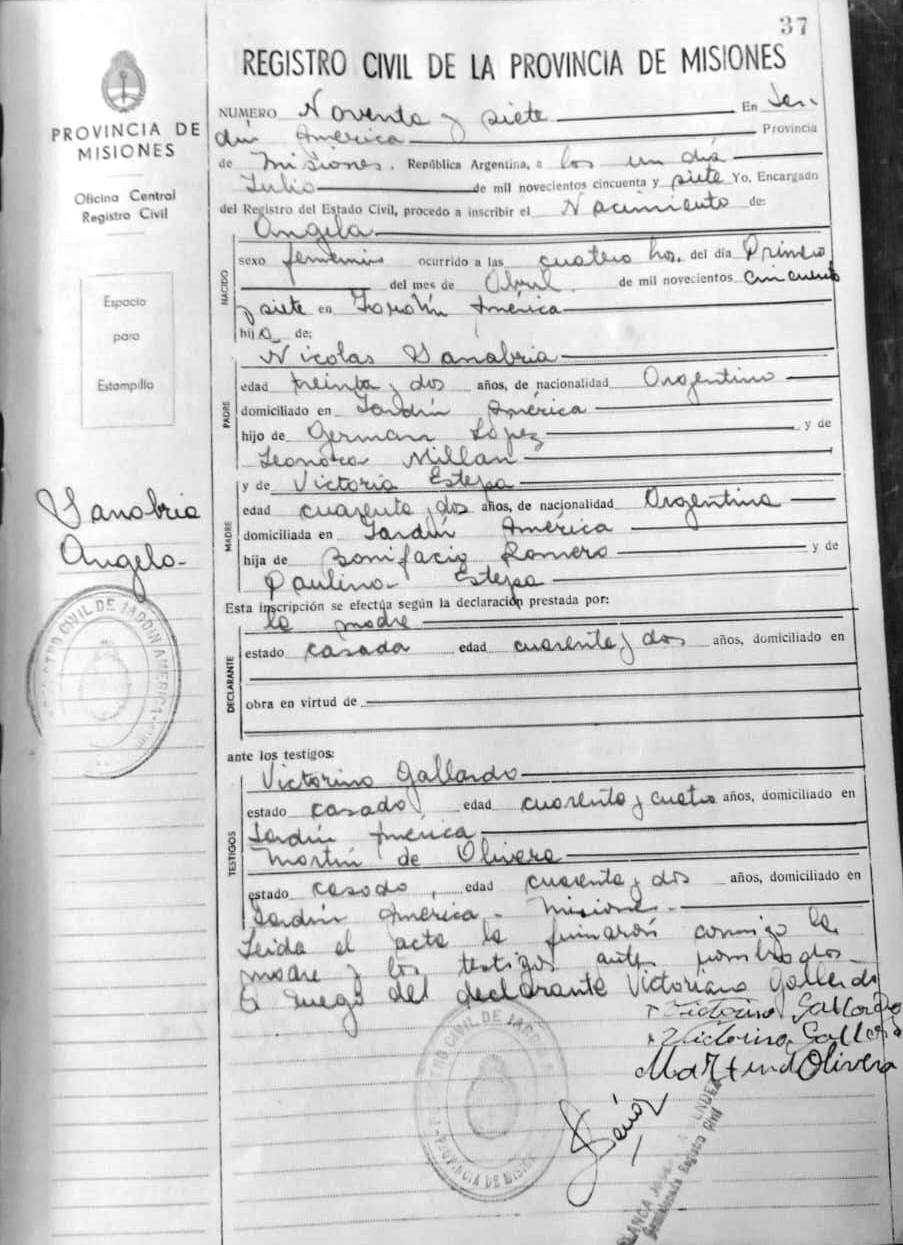 37
REGISTRO CIVIL DE LA PROVINCIA DE MISIONES
PROVINCIA DE
MISIONES
Oficina Central
Registro Civil
Espacio
para
Estampilla
Sanabria
Angela
NUMERO Noventa y siete En Jar-
dín América Provincia
de Misiones. República Argentina, a los un día
Julio de mil novecientos cincuenta y siete Yo, Encargado
del Registro del Estado Civil, procedo a inscribir el Nacimiento de:
Angela
NACIDO
sexo femenino ocurrido a las cuatro hs. del día Primero
del mes de Abril. de mil novecientos cincuenta
y siete en Jardín América
hija de:
Nicolas Sanabria
PADRE
edad treinta y dos años, de nacionalidad Argentino
domiciliado en Jardín América
hijo de German López y de
Leonora Millan
y de Victoria Estepa
MADRE
edad cuarenta y dos años, de nacionalidad Argentina
domiciliada en Jardín América
hija de Bonifacio Romero y de
Paulina Estepa
Esta inscripción se efectúa según la declaración prestada por:
la madre
DECLARANTE
estado casada edad cuarenta y dos años, domiciliado en
obra en virtud de
ante los testigos:
Victorino Gallardo
TESTIGOS
estado casado edad cuarenta y cuatro años, domiciliado en
Jardín América
Martín de Olivera
estado casado, edad cuarenta y dos años, domiciliado en
Jardín América - Misiones.-
Leida el acta la firmarón conmigo la
madre y los testigos antes nombrados
A ruego del declarante Victoriano Gallardo
Victorino Gallardo
Victorino Gallardo
Martin d Olivera
REGISTRO CIVIL DE JARDIN AMERICA
REGISTRO CIVIL DE JARDIN
PROVINCIA DE MISIONES
BLANCA